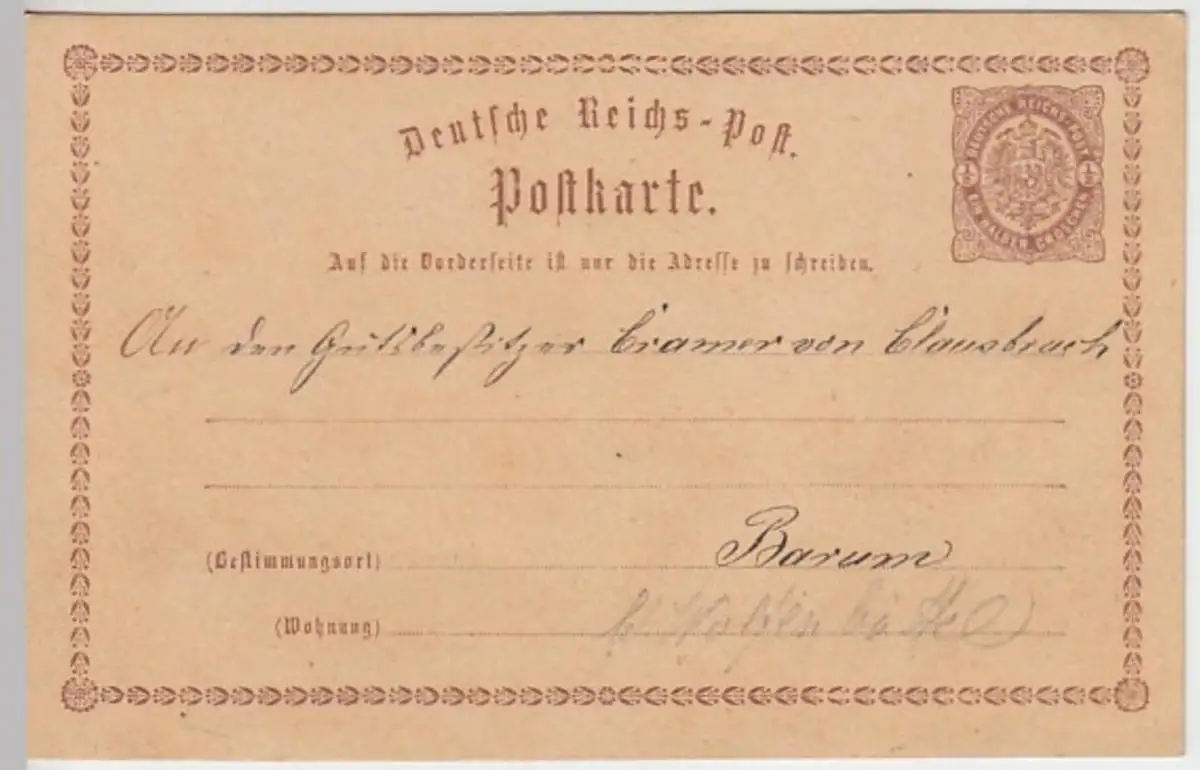 Deutsche Reichs-Post.
Postkarte.
DEUTSCHE REICHS-POST
½ ½
EIN HALBER GROSCHEN
Auf die Vorderseite ist nur die Adresse zu schreiben.
An den Gutsbesitzer Cramer von Clausbruch
(Bestimmungsort) Barum
(Wohnung) b/ Wolfenbüttel